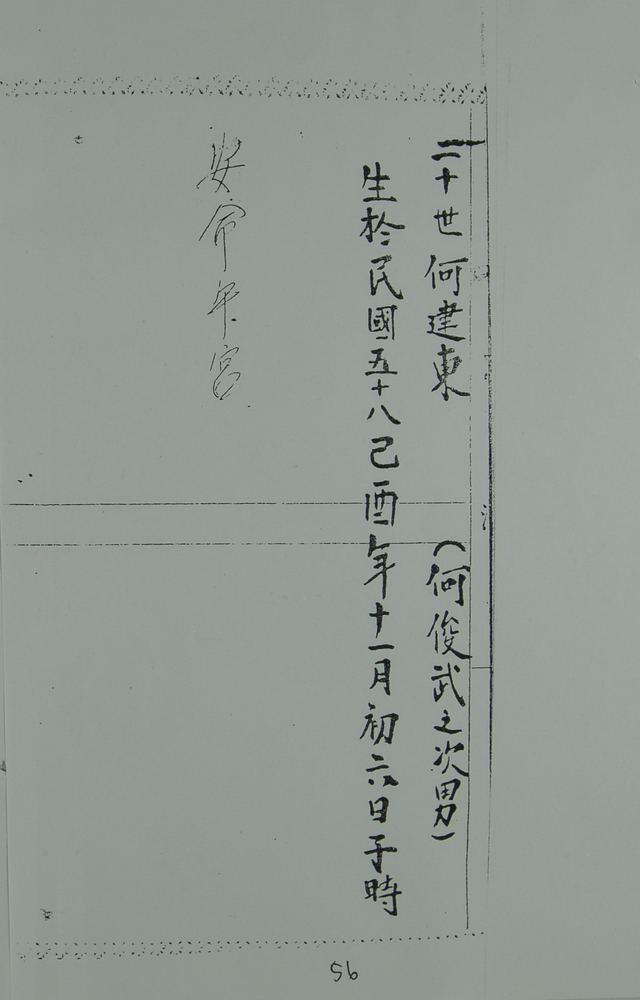 二十世何建東 (何俊武之次男)
生於民國五十八己酉年十一月初六日子時
安命午宮
56